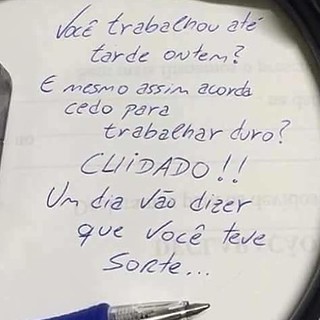 Você trabalhou até
tarde ontem?
E mesmo assim acorda
cedo para
trabalhar duro?
CUIDADO!!
Um dia vão dizer
que você teve
sorte...